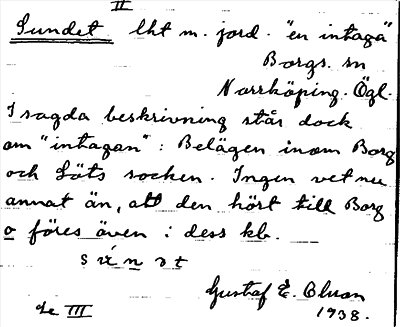 II
Sundet lht m. jord. "en intaga"
Borgs sn
Norrköping. Ögl.
I sagda beskrivning står dock
om "intagan": Belägen inom Borg
och Löts socken. Ingen vet nu
annat än, att den hört till Borg
o föres även i dess kb.
Gustaf E. Olson
1938.
Se III